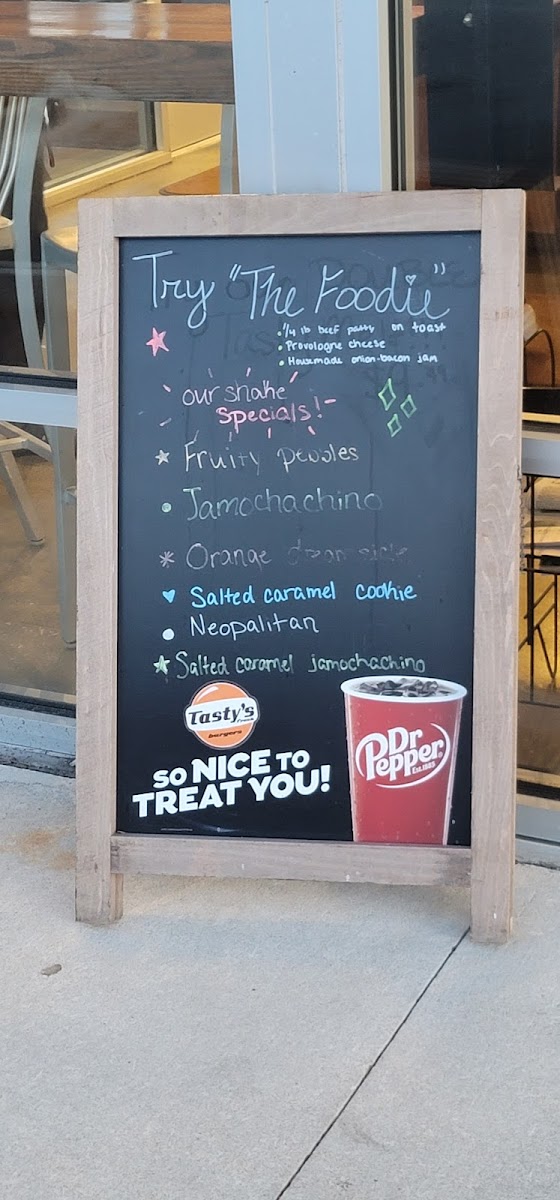 Try "The Foodie"
• 1/4 lb beef patty on toast
• Provologne cheese
• Housmade onion-bacon jam
our shake
specials!
Fruity pebbles
• Jamochachino
* Orange
Salted caramel cookie
• Neopalitan
Salted caramel jamochachino
Tasty's
burgers
SO NICE TO
TREAT YOU!
Dr
Pepper
EST. 1885